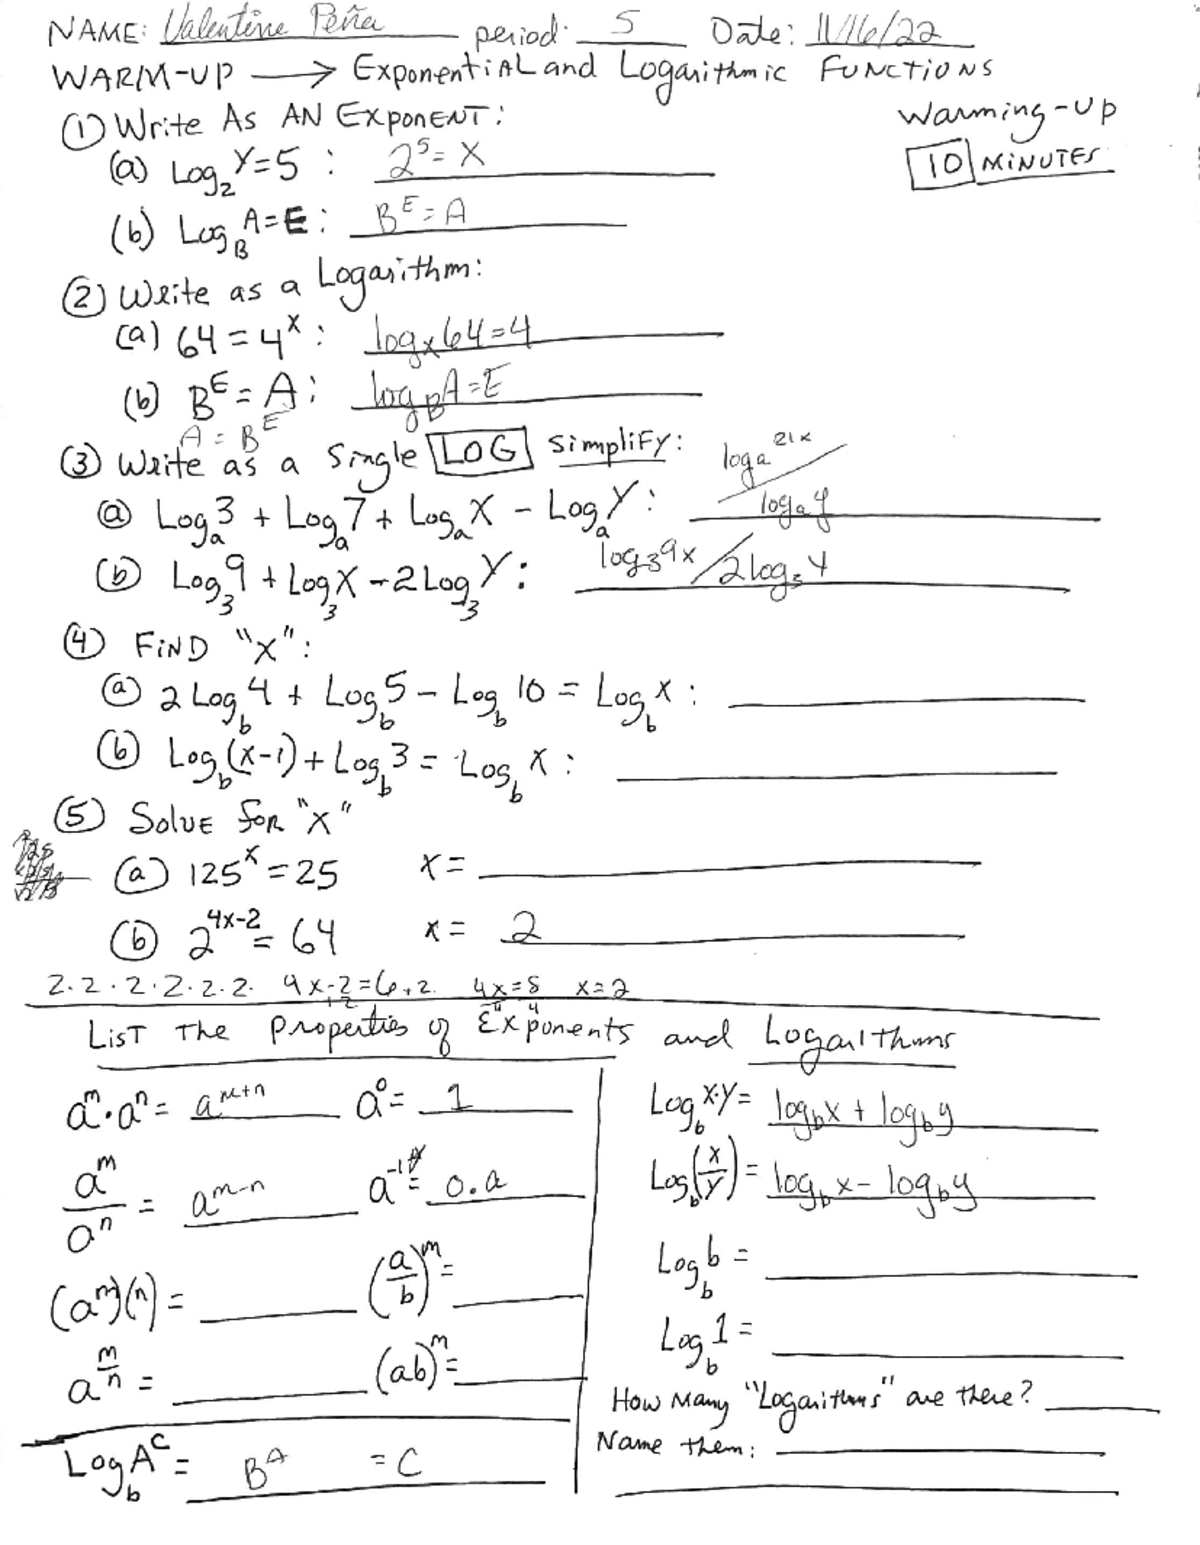 NAME: Valentine Peña period: 5 Date: 11/16/22
WARM-UP → Exponential and Logarithmic Functions
Warming-up
10 MINUTES
① Write As AN Exponent:
(a) Log₂Y=5 : 2⁵=X
(b) Log_B A=E : B^E=A
② Write as a Logarithm:
(a) 64=4^x : log_x 64=4
(b) B^E=A : log_B A=E
A=B^E
③ Write as a Single LOG Simplify:
(a) Log_a 3 + Log_a 7 + Log_a X - Log_a Y : log_a 21x / log_a y
(b) Log₃9 + Log₃X - 2Log₃Y : log₃9x / 2log₃y
④ FIND "x":
(a) 2Log_b 4 + Log_b 5 - Log_b 10 = Log_b x :
(b) Log_b(x-1) + Log_b 3 = Log_b X :
⑤ Solve for "x"
(a) 125^x = 25 x=
(b) 2^(4x-2) = 64 x= 2
2·2·2·2·2·2· 4x-2=6+2 4x=8 x=2
+2 4 4
List the properties of Exponents and Logarithms
a^m·a^n = a^(m+n) a^0 = 1
a^m/a^n = a^(m-n) a^-1 = 0.a
(a^m)(n) = (a/b)^m =
a^(m/n) = (ab)^m =
Log_b A^C = B^A = C
Log_b X·Y = log_b x + log_b y
Log_b(x/y) = log_b x - log_b y
Log_b b =
Log_b 1 =
How Many "Logarithms" are there?
Name them: